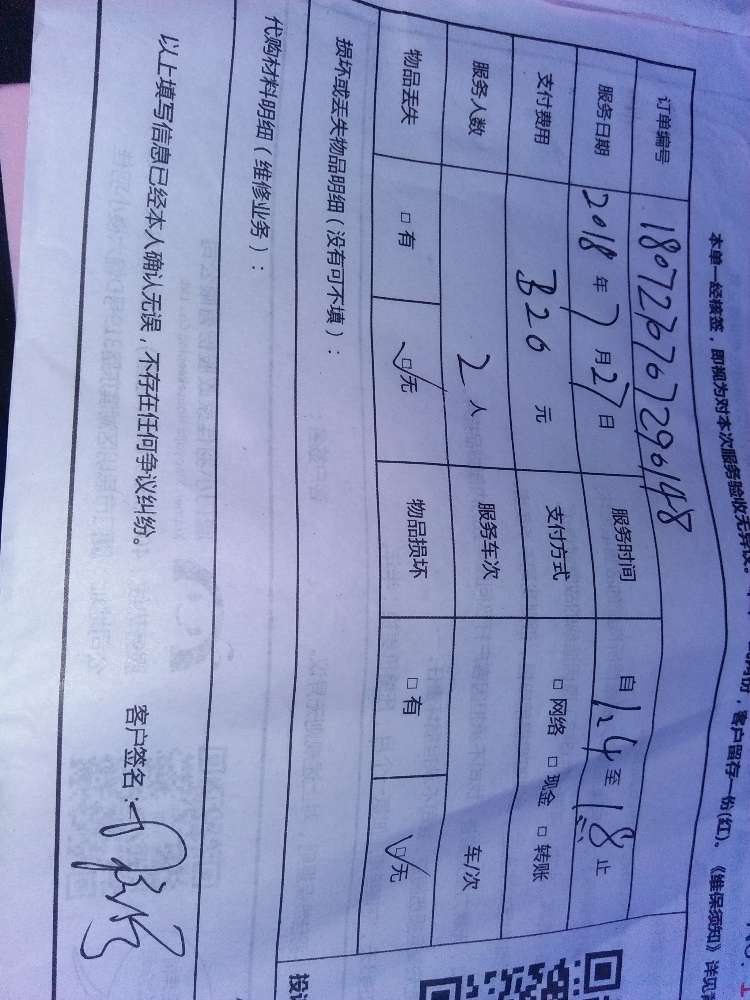 本单一经核签，即视为对本次服务验收无异议。
客户留存一份(红)。《维保须知》详见
订单编号 180726707290148
服务日期 2018年7月27日 服务时间 自14至18止
支付费用 320元 支付方式 □网络 □现金 □转账
服务人数 2人 服务车次 车/次
物品丢失 □有 ☑无 物品损坏 □有 ☑无
损坏或丢失物品明细（没有可不填）：
代购材料明细（维修业务）：
以上填写信息已经本人确认无误，不存在任何争议纠纷。
客户签名：